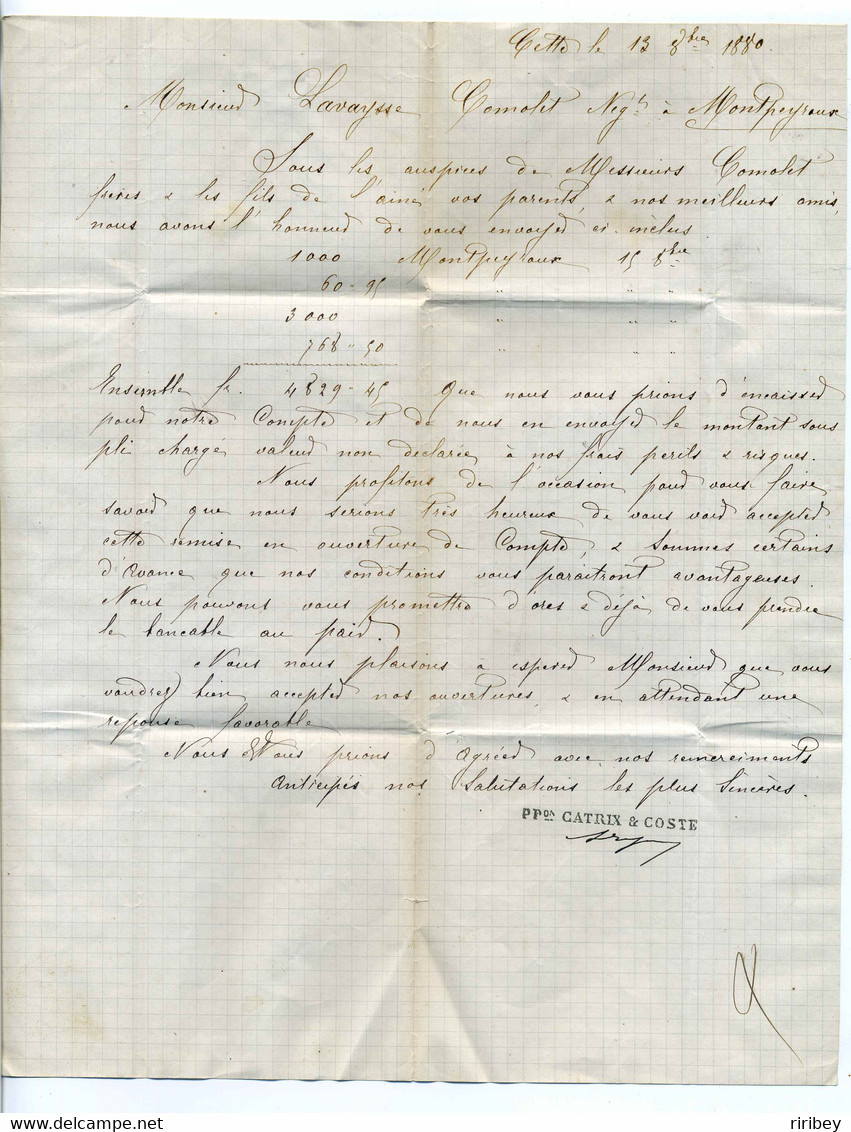 Cette le 13 8bre 1880.
Monsieur Lavaysse Comolet Negt à Montpeyroux
Sous les auspices de Messieurs Comolet
freres & les fils de l'ainé, vos parents, & nos meilleurs amis,
nous avons l'honneur de vous envoyer ci-inclus
1000 Montpeyroux 15 8bre
60 - 95 " " "
3000 " " "
768 " 50 " " "
Ensemble fr. 4829 - 45 Que nous vous prions d'encaisser
pour notre Compte et de nous en envoyer le montant sous
pli chargé valeur non declarée, à nos frais perils & risques.
Nous profitons de l'occasion pour vous faire
savoir que nous serions très heureux de vous voir accepter
cette remise en ouverture de Compte, & sommes certains
d'avance que nos conditions vous paraitront avantageuses.
Nous pouvons vous promettre d'ores & déjà de vous prendre
le bancable au pair.
Nous nous plaisons à esperer Monsieur que vous
voudrez bien accepter nos ouvertures, & en attendant une
reponse favorable
Nous Vous prions d'Agréer avec nos remerciments
anticipés nos Salutations les plus Sincères.
PPon CATRIX & COSTE
riribey